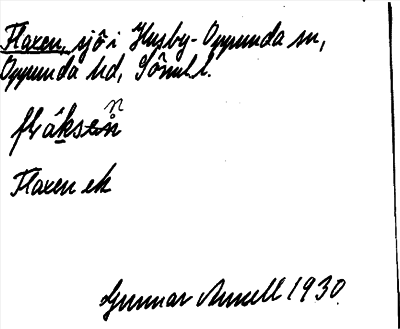 Flaxen, sjö i Husby-Oppunda sn,
Oppunda hd, Sörml l.
flåksen
Flaxen ek
Gunnar 1930